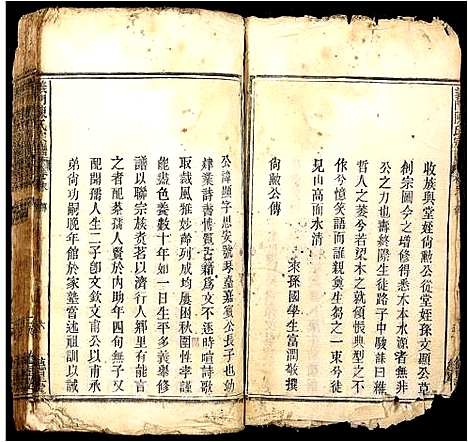 收族與堂姪尙勳公從堂姪孫文顯公草
創宗圖今之增修得悉木本水源者無非
公之力也壽終際生徒路子中駿誄曰維
哲人之萎兮若梁木之就頹悵典型之不
作兮憶笑語而誰親奠生芻之一束兮徒
見山高而水清
來孫國學生富潤敬撰
尙勳公傳
公諱顯字思安號琴嘉賓公長子也幼
肄業詩書博覽古籍爲文不逐時喧詩歌
取裁風雅妙齡列成均屢困秋闈性孝謹
色養數十年如一日生平多義舉修
譜以聯宗族賁茗以濟行人鄉里有能言
之者配蔡孺人賢於內助年四旬無子又
配開孺人生二子卽文欽文甫公以承子
弟尙功嗣晚年館於家塾嘗述祖訓以誡